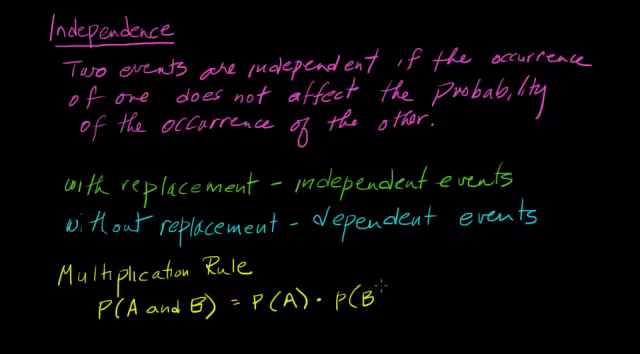 Independence
Two events are independent if the occurrence
of one does not affect the probability
of the occurrence of the other.
with replacement - independent events
without replacement - dependent events
Multiplication Rule
P(A and B) = P(A) · P(B